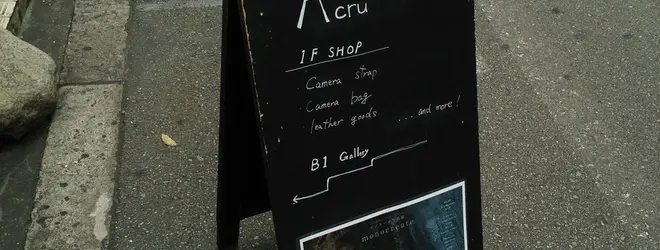 Acru
1F SHOP
Camera strap
Camera bag
leather goods ... and more!
B1 Gallery
monocreate